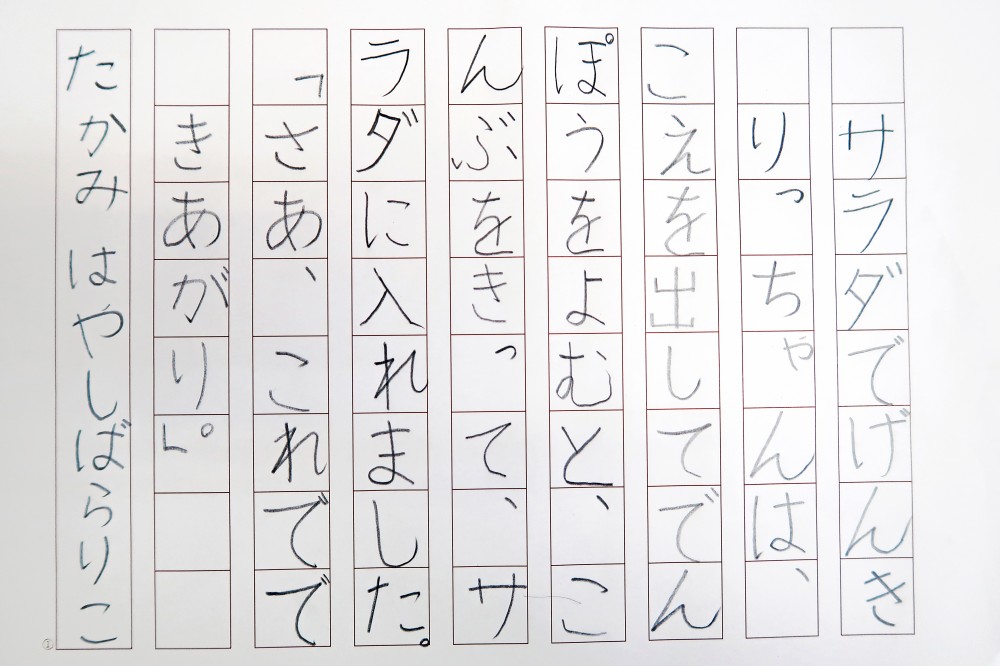 サラダでげんき
りっちゃんは、
こえを出してでん
ぽうをよむと、こ
んぶをきって、サ
ラダに入れました。
「さあ、これでで
きあがり」。
たかみ はやしばらりこ
①